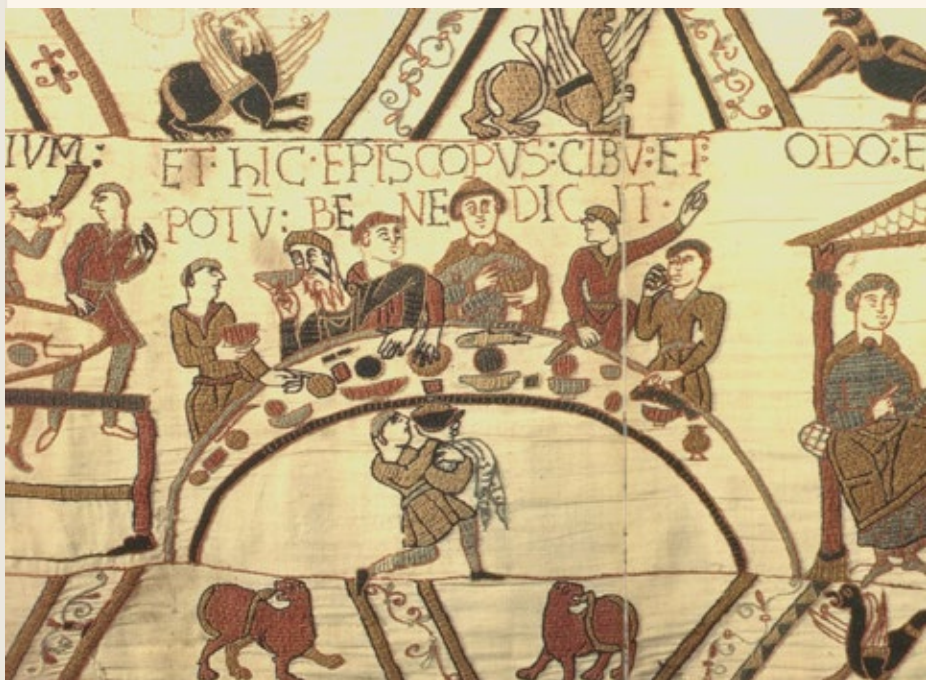 IVM: ET·hIC·EPISCOPVS:CIBV̅:ET: ODO:E
POTV̅: BENEDICIT·